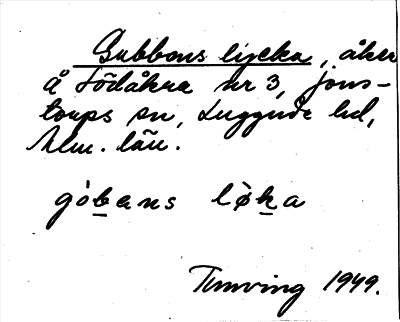 Gubbens lycka, åker
å Södåkra nr 3, Jons-
torps sn, Luggude hd,
Mlm. län.
gòbens lỳka
Tunving 1949.